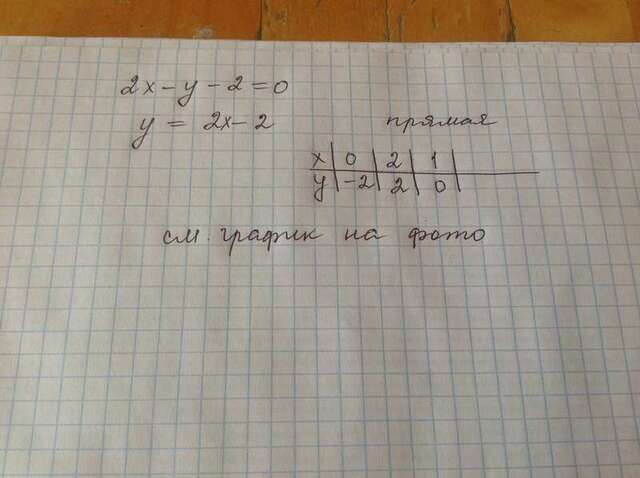 2x - y - 2 = 0
y = 2x - 2 прямая
x | 0 | 2 | 1 |
y | -2 | 2 | 0 |
см. график на фото